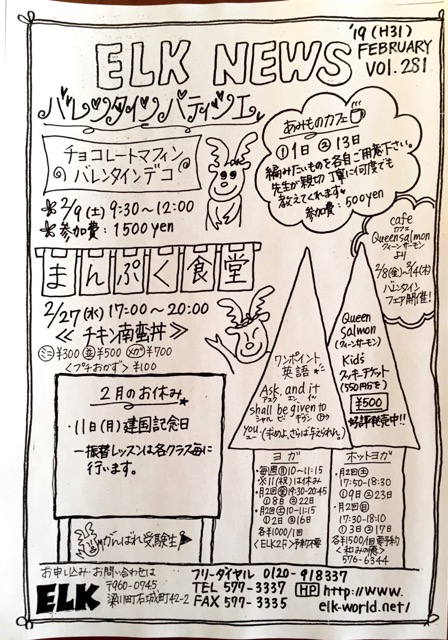 ELK NEWS
'19 (H31)
FEBRUARY
VOL. 281
バレンタインパティシエ
チョコレートマフィン
バレンタインデコ
2/9(土) 9:30～12:00
参加費:1500yen
あみものカフェ
①1日 ②13日
編みたいものを各自ご用意下さい。
先生が親切丁寧に何度でも
教えてくれます♥
参加費:500yen
cafe
カフェ
Queensalmon
クィーンサーモン
より
2/8(金)～3/14(木)
バレンタイン
フェア開催!
まんぷく食堂
2/27(水) 17:00～20:00
≪チキン南蛮丼≫
ミニ ¥300 並 ¥500 メガ ¥700
<プチおかず> ¥100
ワンポイント
英語
Ask, and it
アスク エン イッ
shall be given to
シャル ビ ギヴン トゥ
you
ユー (求めよ、さらば与えられん。)
Queen
Salmon
(クィーンサーモン)
Kid's
クッキーチケット
(550円分を)
¥500
好評発売中!!
2月のお休み
・11日(月) 建国記念日
→振替レッスンは各クラス毎に
行います。
がんばれ受験生
ヨガ
・毎週(月)10～11:15
※11(祝)は休み
・月2回(金)19:30-20:45
①8日 ②22日
・月2回(土)10-11:15
①2日 ②16日
各¥1000/1回
<ELK2F>予約不要
ホットヨガ
・月2回(土)
17:50-18:30
①9日 ②23日
・月2回(日)
17:30-18:10
①3日 ②17日
各¥1500/1回要予約
<和みの湯>
576-6344
お申し込み・お問い合わせは
ELK
〒960-0745
梁川町石城町42-2
フリーダイヤル 0120-918337
TEL 577-3337
FAX 577-3335
HP http://www.
elk-world.net/